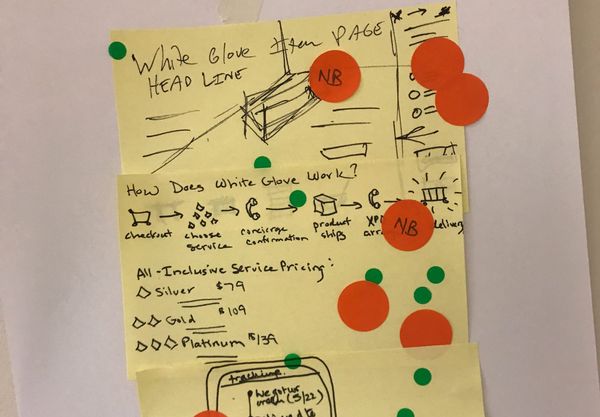 White Glove Item PAGE
HEAD LINE
NB
How Does White Glove Work?
checkout
choose service
concierge confirmation
product ships
delivery
NB
All-Inclusive Service Pricing:
Silver $79
Gold $109
Platinum $139
tracking
We got ur
order (5/22)